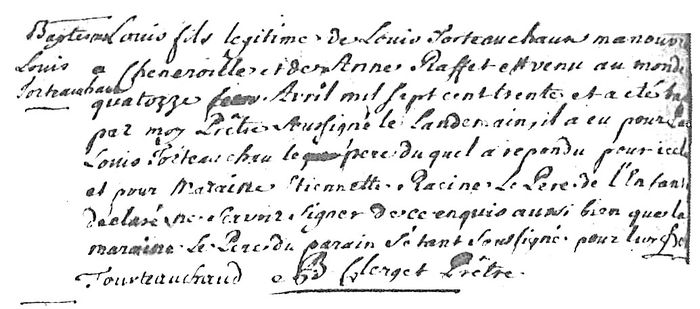 Bapteme Louis fils legitime de Louis Torteauchaux manouvr
Louis a Cheneroille et de Anne Raffet est venu au monde
Torteauchaux quatozze Avril mil sept cent trente et a eté ba
par moy Prêtre soussigné le Landemain, il a eu pour Par
Louis Torteauchau le pere duquel a repondu pour icel
et pour Maraine Etiennette Racine Le Pere de l'Enfant
declaré ne scavoir signer de ce enquis aussi bien que la
maraine Le Pere du parain s'étant soussigné pour luy
Tourteauchaud Clerget Prêtre